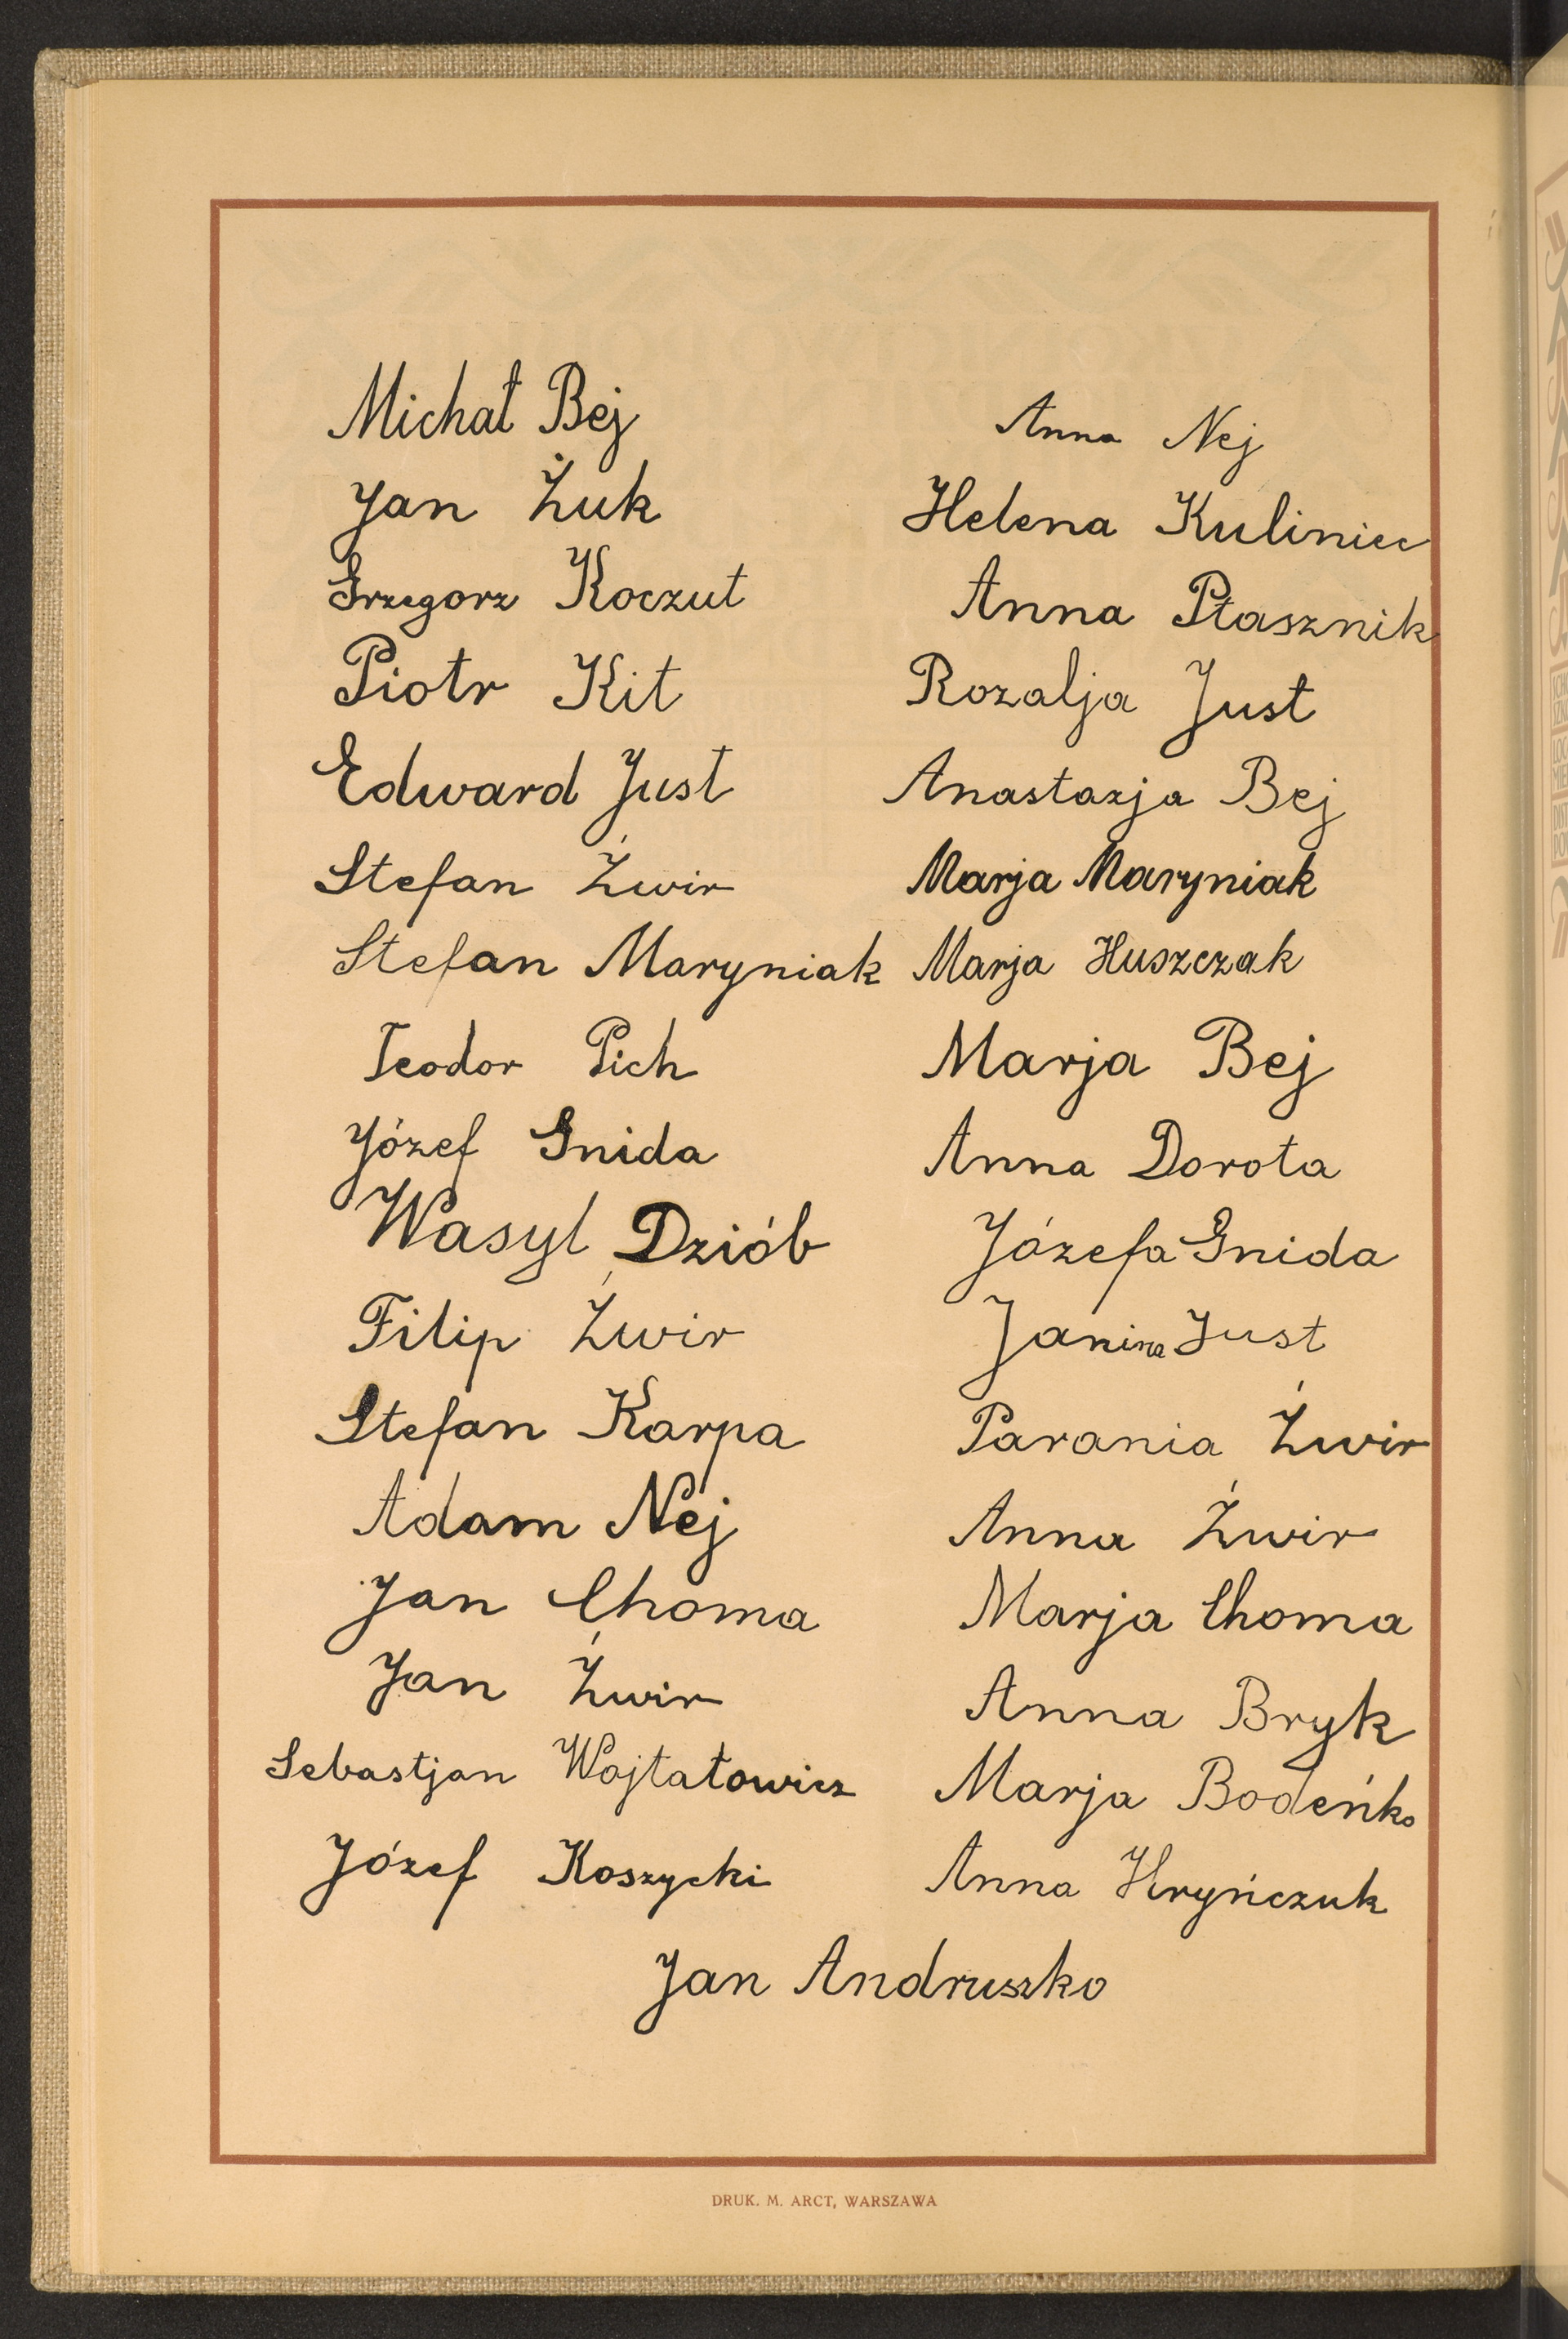 Michał Bej
Jan Żuk
Grzegorz Koczut
Piotr Kit
Edward Just
Stefan Żwir
Stefan Maryniak
Teodor Pich
Józef Gnida
Wasyl Dziób
Filip Żwir
Stefan Karpa
Adam Nej
Jan Choma
Jan Żwir
Sebastjan Wojtatowicz
Józef Koszycki
Anna Nej
Helena Kuliniec
Anna Ptasznik
Rozalja Just
Anastazja Bej
Marja Maryniak
Marja Huszczak
Marja Bej
Anna Dorota
Józefa Gnida
Janina Just
Parania Żwir
Anna Żwir
Marja Choma
Anna Bryk
Marja Bodeńko
Anna Hryńczuk
Jan Andruszko
DRUK. M. ARCT, WARSZAWA